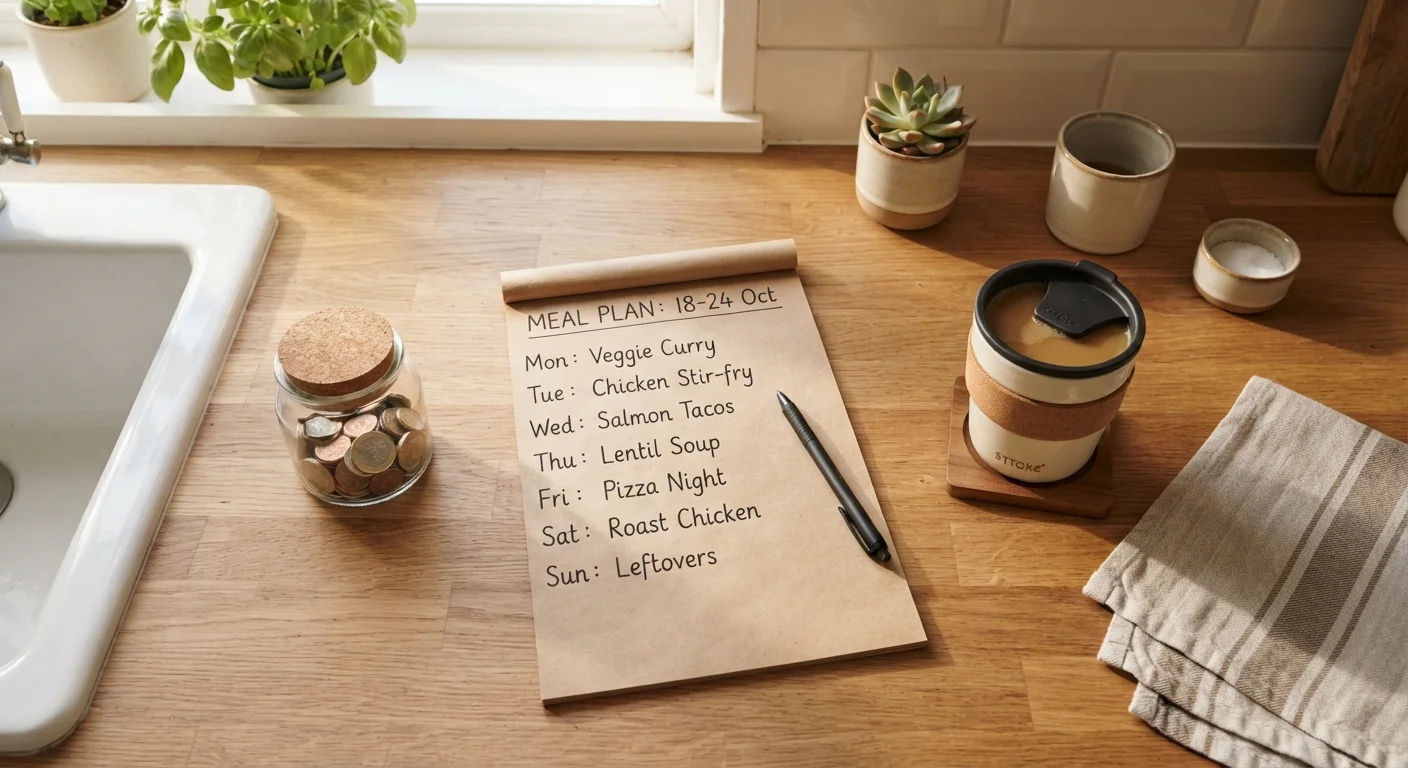 MEAL PLAN: 18-24 Oct
Mon: Veggie Curry
Tue: Chicken Stir-fry
Wed: Salmon Tacos
Thu: Lentil Soup
Fri: Pizza Night
Sat: Roast Chicken
Sun: Leftovers
STTOKE